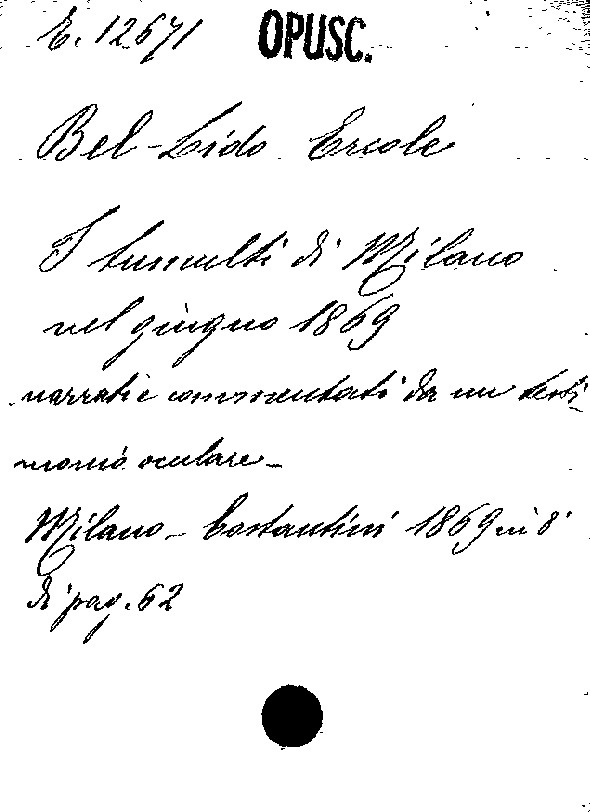 E. 12671 OPUSC.
Bel-Lido Ercole
I tumulti di Milano
nel giugno 1869
narrati e commentati da un testi-
monio oculare_
Milano_ Costantini 1869 in 8°
di pag. 62